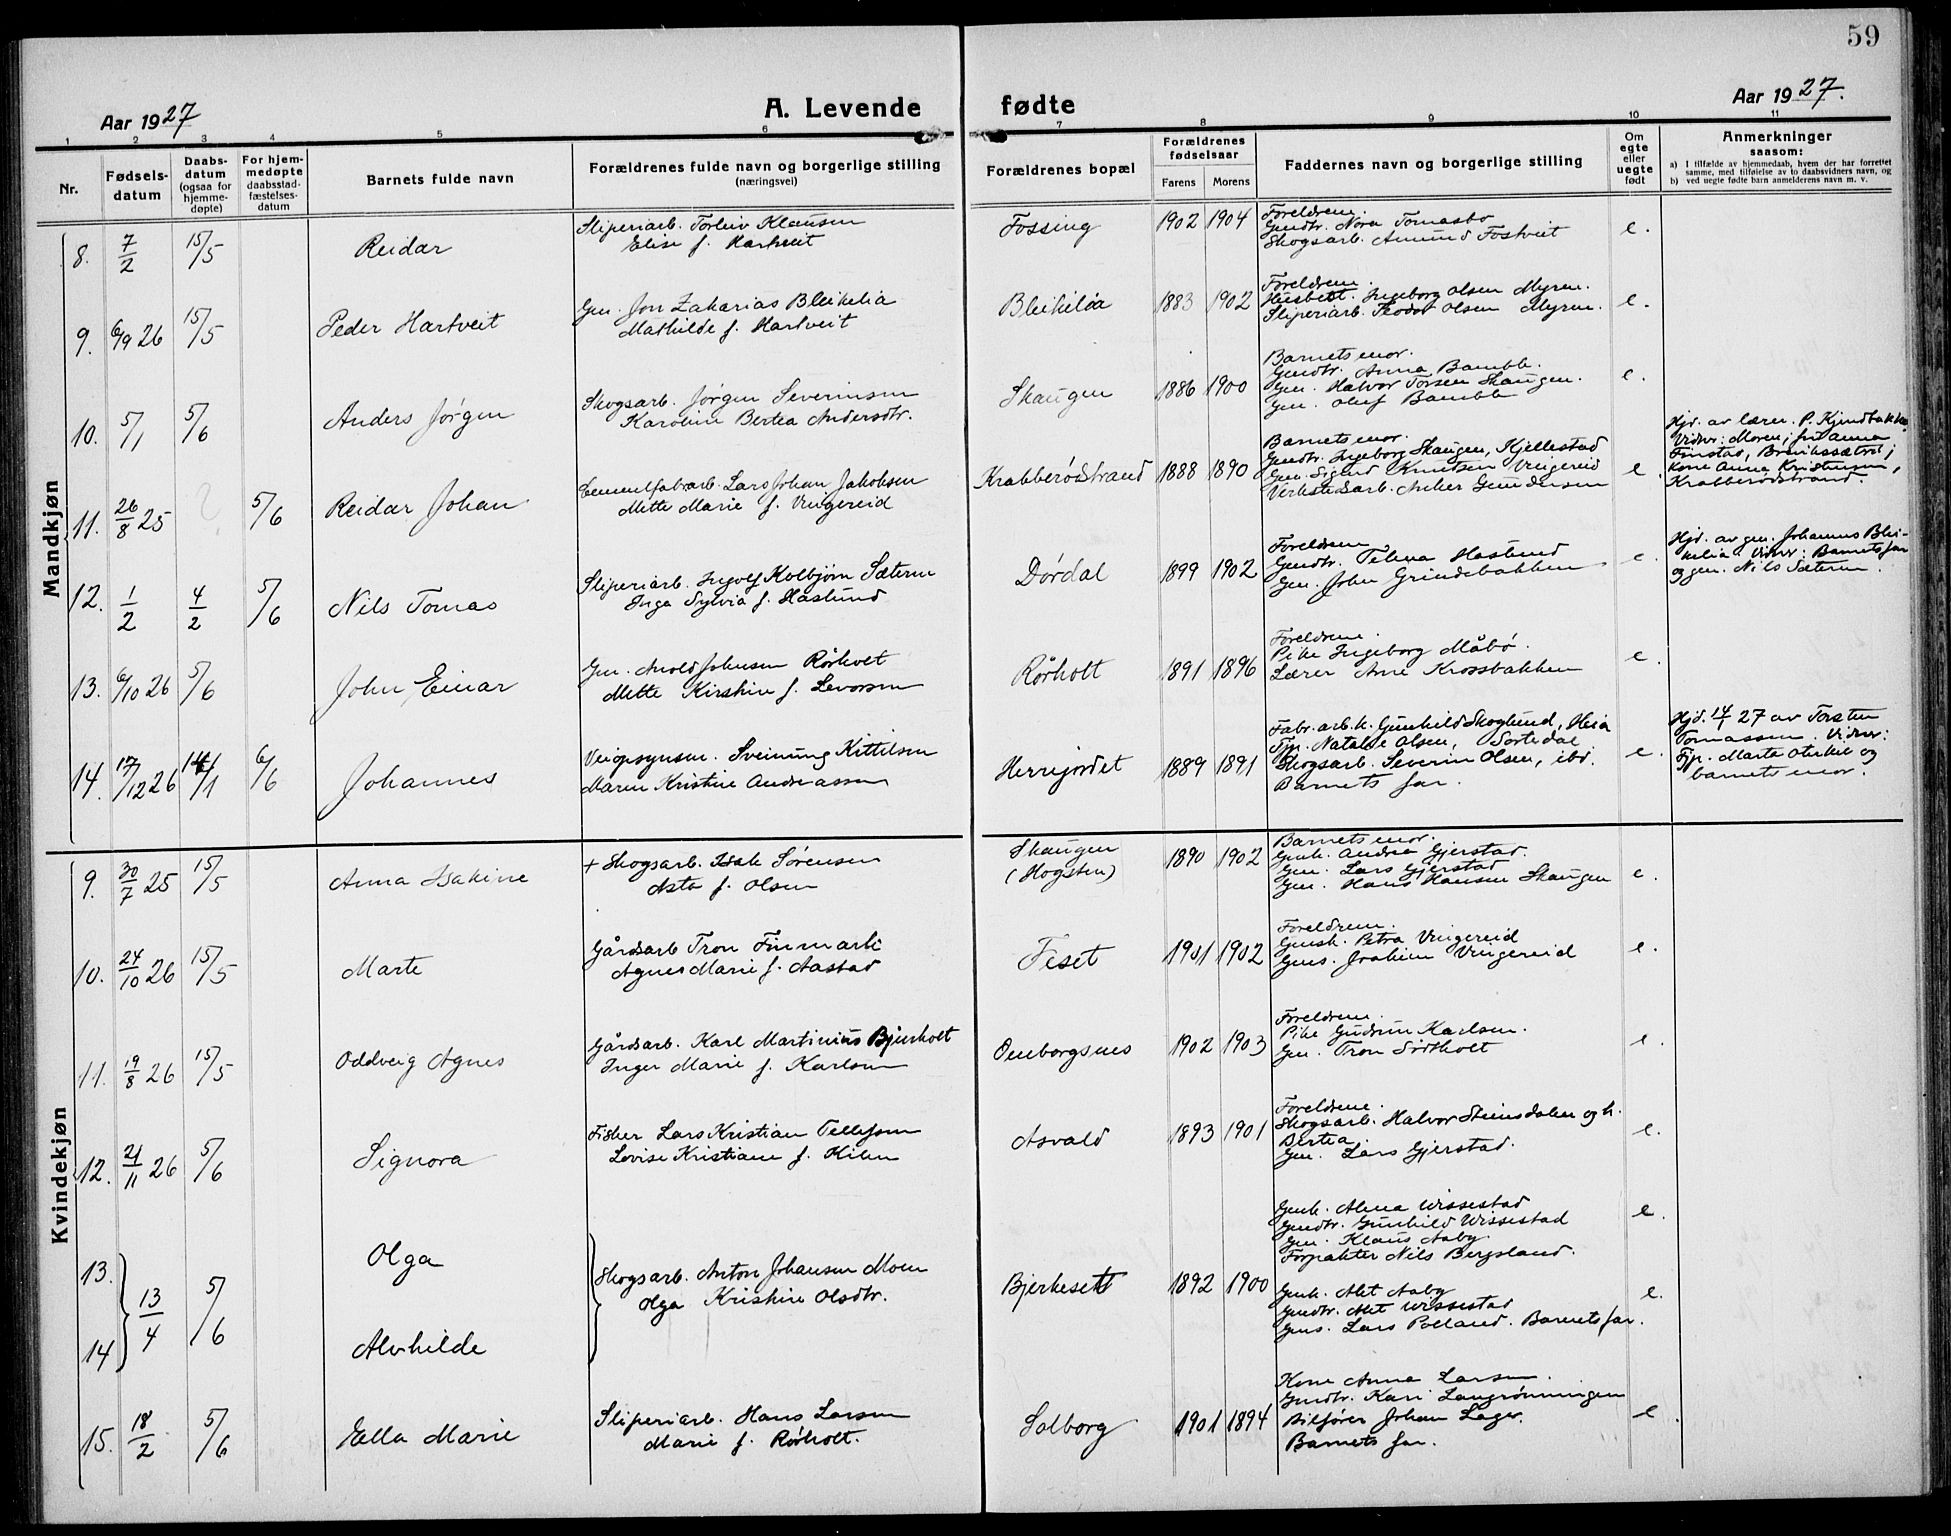 59
Aar 1927
A. Levende
fødte
Aar 1927.
1 2 3 4 5 6 7 8 9 10 11
Nr.
Fødsels-
datum
Daabs-
datum
(ogsaa for
hjemme-
døpte)
For hjem-
medøpte
daabsstad-
fæstelses-
datum
Barnets fulde navn
Forældrenes fulde navn og borgerlige stilling
(næringsvei)
Forældrenes bopæl
Forældrenes
fødselsaar
Farens Morens
Faddernes navn og borgerlige stilling
Om
egte
eller
uegte
født
Anmerkninger
saasom:
a) I tilfælde av hjemmedaab, hvem der har forrettet
samme, med tilføielse av to daabsvidners navn, og
b) ved uegte fødte barn anmelderens navn m. v.
Mandkjøn
8. 7/2 15/5 Reidar
Sliperiarb. Torleiv Klausen
Elise f. Hartveit
Fossing 1902 1904
Foreldrene.
Gmdtr. Nora Tomasbo
Skogsarb. Amund Fostveit
e.
9. 6/9 26 15/5 Peder Hartveit
Gm. Jon Zakarias Bleikelia
Mathilde f. Hartveit
Bleikelia 1883 1902
Foreldrene.
Husbest. Ingeborg Olsen Myren.
Sliperiarb. Teodor Olsen Myren.
e.
10. 5/1 5/6 Anders Jørgen
Skogsarb. Jørgen Severinsen
Karoline Bertea Andersdtr.
Skaugen 1886 1900
Barnets mor.
Gmdtr. Anna Bamble.
Gm. Halvor Torsen Skaugen.
Gm. Oluf Bamble
e.
11. 26/8 25 5/6 Reidar Johan
Cementfabrarb. Lars Johan Jakobsen
Mette Marie f. Vingereid
Krabberødstrand 1888 1890
Barnets mor.
Gmdtr. Ingeborg Skaugen, Kjellestad
Gm. Sigurd Knutsen Vingereid
Verkstedsarb. Anker Gundersen
e.
Hjd. av lærer P. Kjendbakke
Vidner: Moren; frk Anna
Finstad, Brevikssætra;
Kone Anna Kristensen,
Krabberødstrand.
12. 1/2 4/2 5/6 Nils Tomas
Sliperiarb. Ingolf Kolbjørn Sæteren
Inga Sylvia f. Haslund
Dørdal 1899 1902
Foreldrene
Gmdtr. Telma Haslund
Gm. John Grindebakken
e.
Hjd. av gm. Johannes Blei-
kelia Vidner: Barnets far
og gm. Nils Sæteren.
13. 6/10 26 5/6 John Einar
Gm. Arold Johnsen Rørholt
Mette Kirstine f. Levorsen
Rørholt 1891 1896
Foreldrene.
Pike Ingeborg Måbø.
Lærer Arne Krossbakken
e.
14. 17/12 26 14/1 6/6 Johannes
Veiopsynsm. Sveinung Kittilsen
Maren Kristine Andreassen
Herrejordet 1889 1891
Fabr.arb.k. Gunhild Skoglund, Heia
Tjp. Natalie Olsen, Sortedal
Skogsarb. Severin Olsen, ibd.
Barnets far.
e.
Hjd. 14/1 27 av Torsten
Tomassen. Vidner:
Tjp. Marta Olsen og
barnets mor.
Kvindekjøn
9. 30/7 25 15/5 Anna Isakine
+ Skogsarb. Isak Sørensen
Asta f. Olsen
Skaugen
(Hogsten)
1890 1902
Barnets mor.
Gmk. Andrea Gjerstad.
Gm. Lars Gjerstad
Gm. Hans Hansen Skaugen
e.
10. 24/10 26 15/5 Marte
Gårdsarb Tron Finmark
Agnes Marie f. Aastad
Feset 1901 1902
Foreldrene.
Gmsk. Petra Vingereid
Gms. Joakim Vingereid
e.
11. 19/8 26 15/5 Oddveig Agnes
Gårdsarb. Karl Martinius Bjerkholt
Inger Marie f. Karlsen
Omborgsnes 1902 1903
Foreldrene.
Pike Gudrun Karlsen.
Gm. Tron Siftholt
e.
12. 21/11 26 5/6 Signora
Fisker Lars Kristian Tellefsen
Lovise Kristiane f. Hilen
Asvald 1893 1901
Foreldrene.
Skogsarb. Halvor Steinsdalen og k.
Bertea
Gm. Lars Gjerstad.
e.
13. Olga
14 Alvhilde
13/4 5/6
Skogsarb. Anton Johansen Moen
Olga Kristine Olsdtr.
Bjerkesett 1892 1900
Gmk. Alma Wissestad
Gmdtr. Gunhild Wissestad
Gm. Klaus Aaby
Forpakter Nils Bergsland.
e.
Gmk. Alet Aaby
Gmdtr. Alet Wissestad
Gms. Lars Polland. Barnets far.
e.
15. 18/2 5/6 Ella Marie
Sliperiarb. Hans Larsen
Marie f. Rørholt.
Solborg 1901 1894
Kone Anna Larsen.
Gmdtr. Kari Langrønningen
Bilfører Johan Lager.
Barnets far.
e.